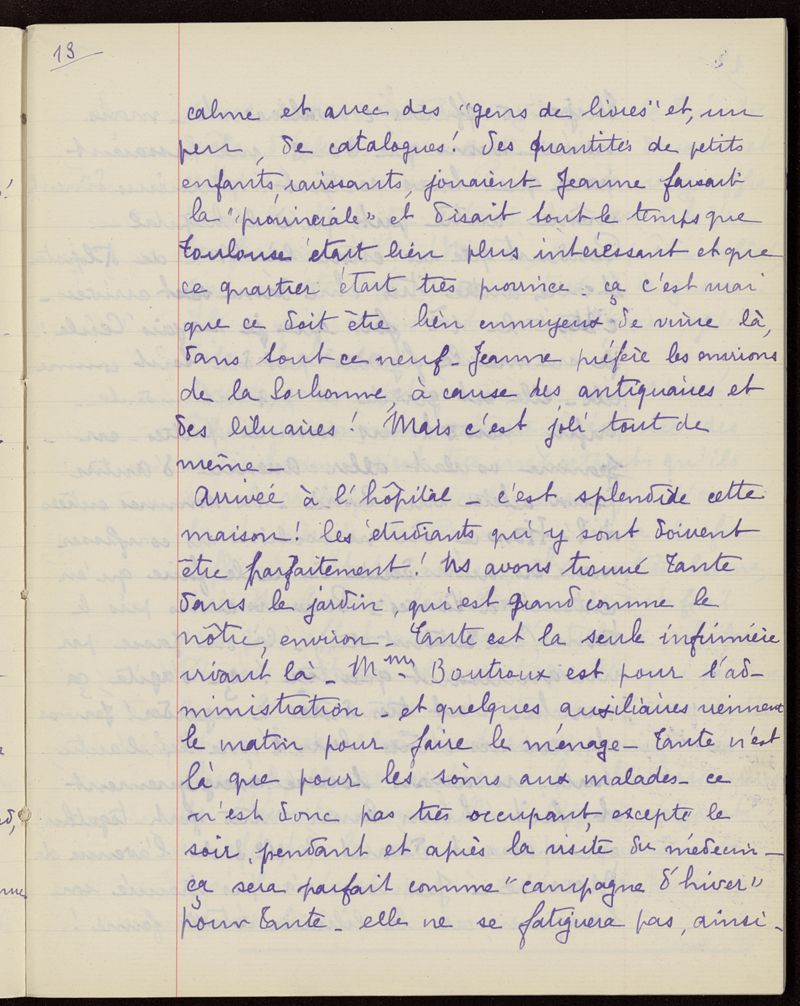 13
calme et avec des "gens de livres" et, un
peu, de catalogues! Des quantités de petits
enfants, ravissants, jouaient - Jeanne faisait
la "provinciale" et disait tout le temps que
Toulouse était bien plus intéressant et que
ce quartier était très province - ça c'est vrai
que ce doit être bien ennuyeux de vivre là,
dans tout ce neuf - Jeanne préfère les environs
de la Sorbonne, à cause des antiquaires et
des libraires! Mais c'est joli tout de
même -
Arrivée à l'hôpital - c'est splendide cette
maison! les étudiants qui y sont doivent
être parfaitement! Ns avons trouvé Tante
dans le jardin, qui est grand comme le
nôtre, environ - Tante est la seule infirmière
vivant là - Mme Boutroux est pour l'ad-
ministration - et quelques auxiliaires viennent
le matin pour faire le ménage - Tante n'est
là que pour les soins aux malades - ce
n'est donc pas très occupant, excepté le
soir, pendant et après la visite du médecin -
ça sera parfait comme "campagne d'hiver"
pour Tante - elle ne se fatiguera pas, ainsi -